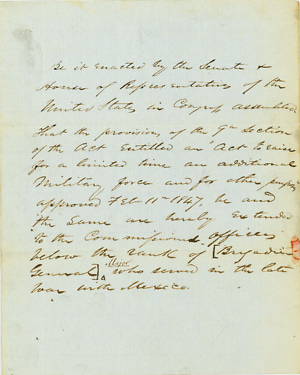 Be it enacted by the Senate &
House of Representatives of the
United States in Congress assembled
That the provisions of the 9th Section
of the Act entitled an "Act to raise
for a limited time an additional
Military force and for other purposes
approved Feb 11th 1847, be and
the Same are hereby extended
to the Commissioned officers
below the rank of [Brigadier
Major
General] who served in the late
war with Mexico.